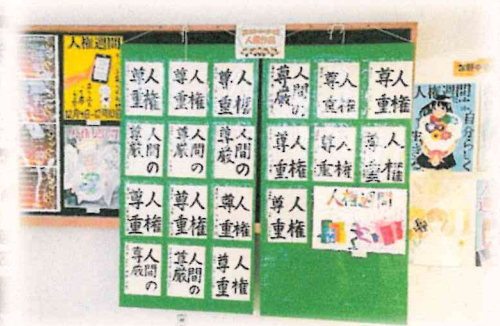 人権週間
人権
尊重
人権
尊重
人権
尊重
人間の
尊厳
人間の
尊厳
人間の
尊厳
人権
尊重
人権
尊重
人権
尊重
人間の
尊厳
人間の
尊厳
人権
尊重
人間の
尊厳
人権
尊重
人権
尊重
人権
尊重
人権
尊重
人権
尊重
人権
尊重
人権週間
人権週間
自分らしく
生きる